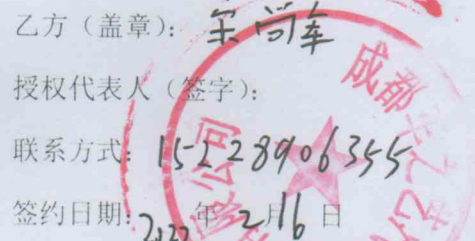 乙方（盖章）：宋尚车
授权代表人（签字）：
联系方式：15228906355
签约日期：2022年2月16日
成都
限公司